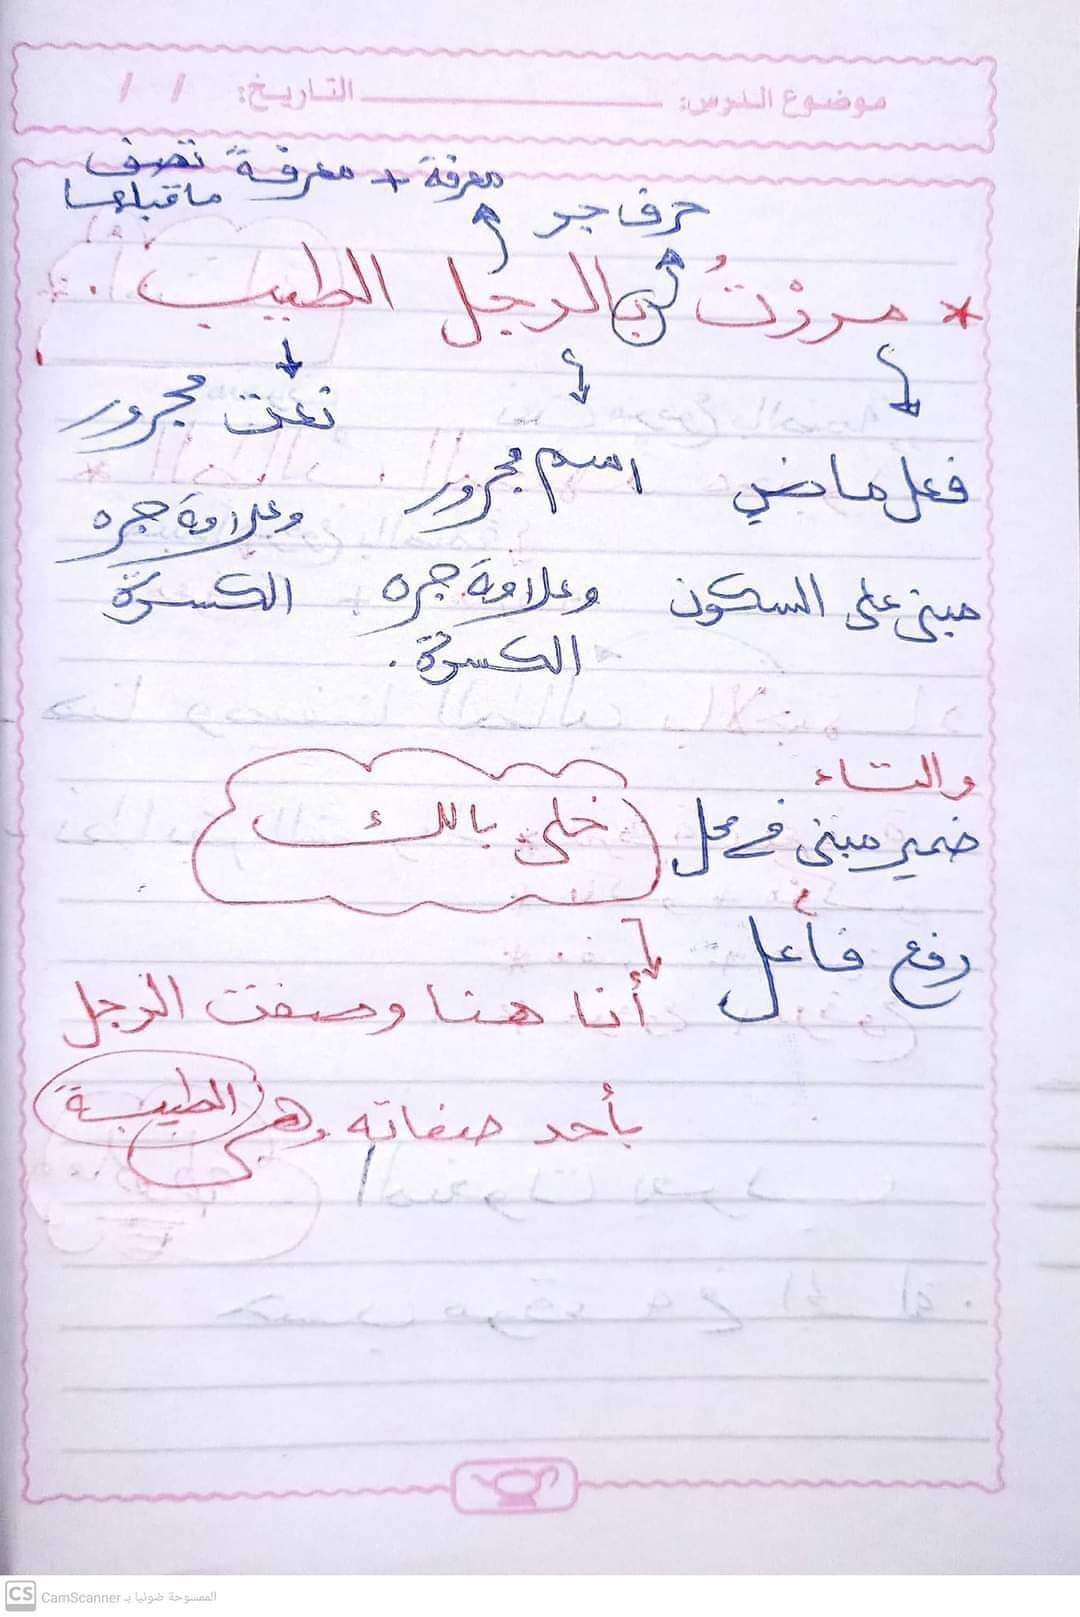 موضوع الدرس: ____________ التاريخ: / /
معرفة + معرفة تصف
ما قبلها
حرف جر
* مررْتُ بالرجل الطيب .
نعت مجرور
فعل ماضي اسم مجرور وعلامة جره
مبنى على السكون وعلامة جره الكسرة
الكسرة .
والتاء
ضمير مبنى في محل
خلى بالك
رفع فاعل
أنا هنا وصفت الرجل
بأحد صفاته وهى الطيبة
CS CamScanner الممسوحة ضوئيا بـ